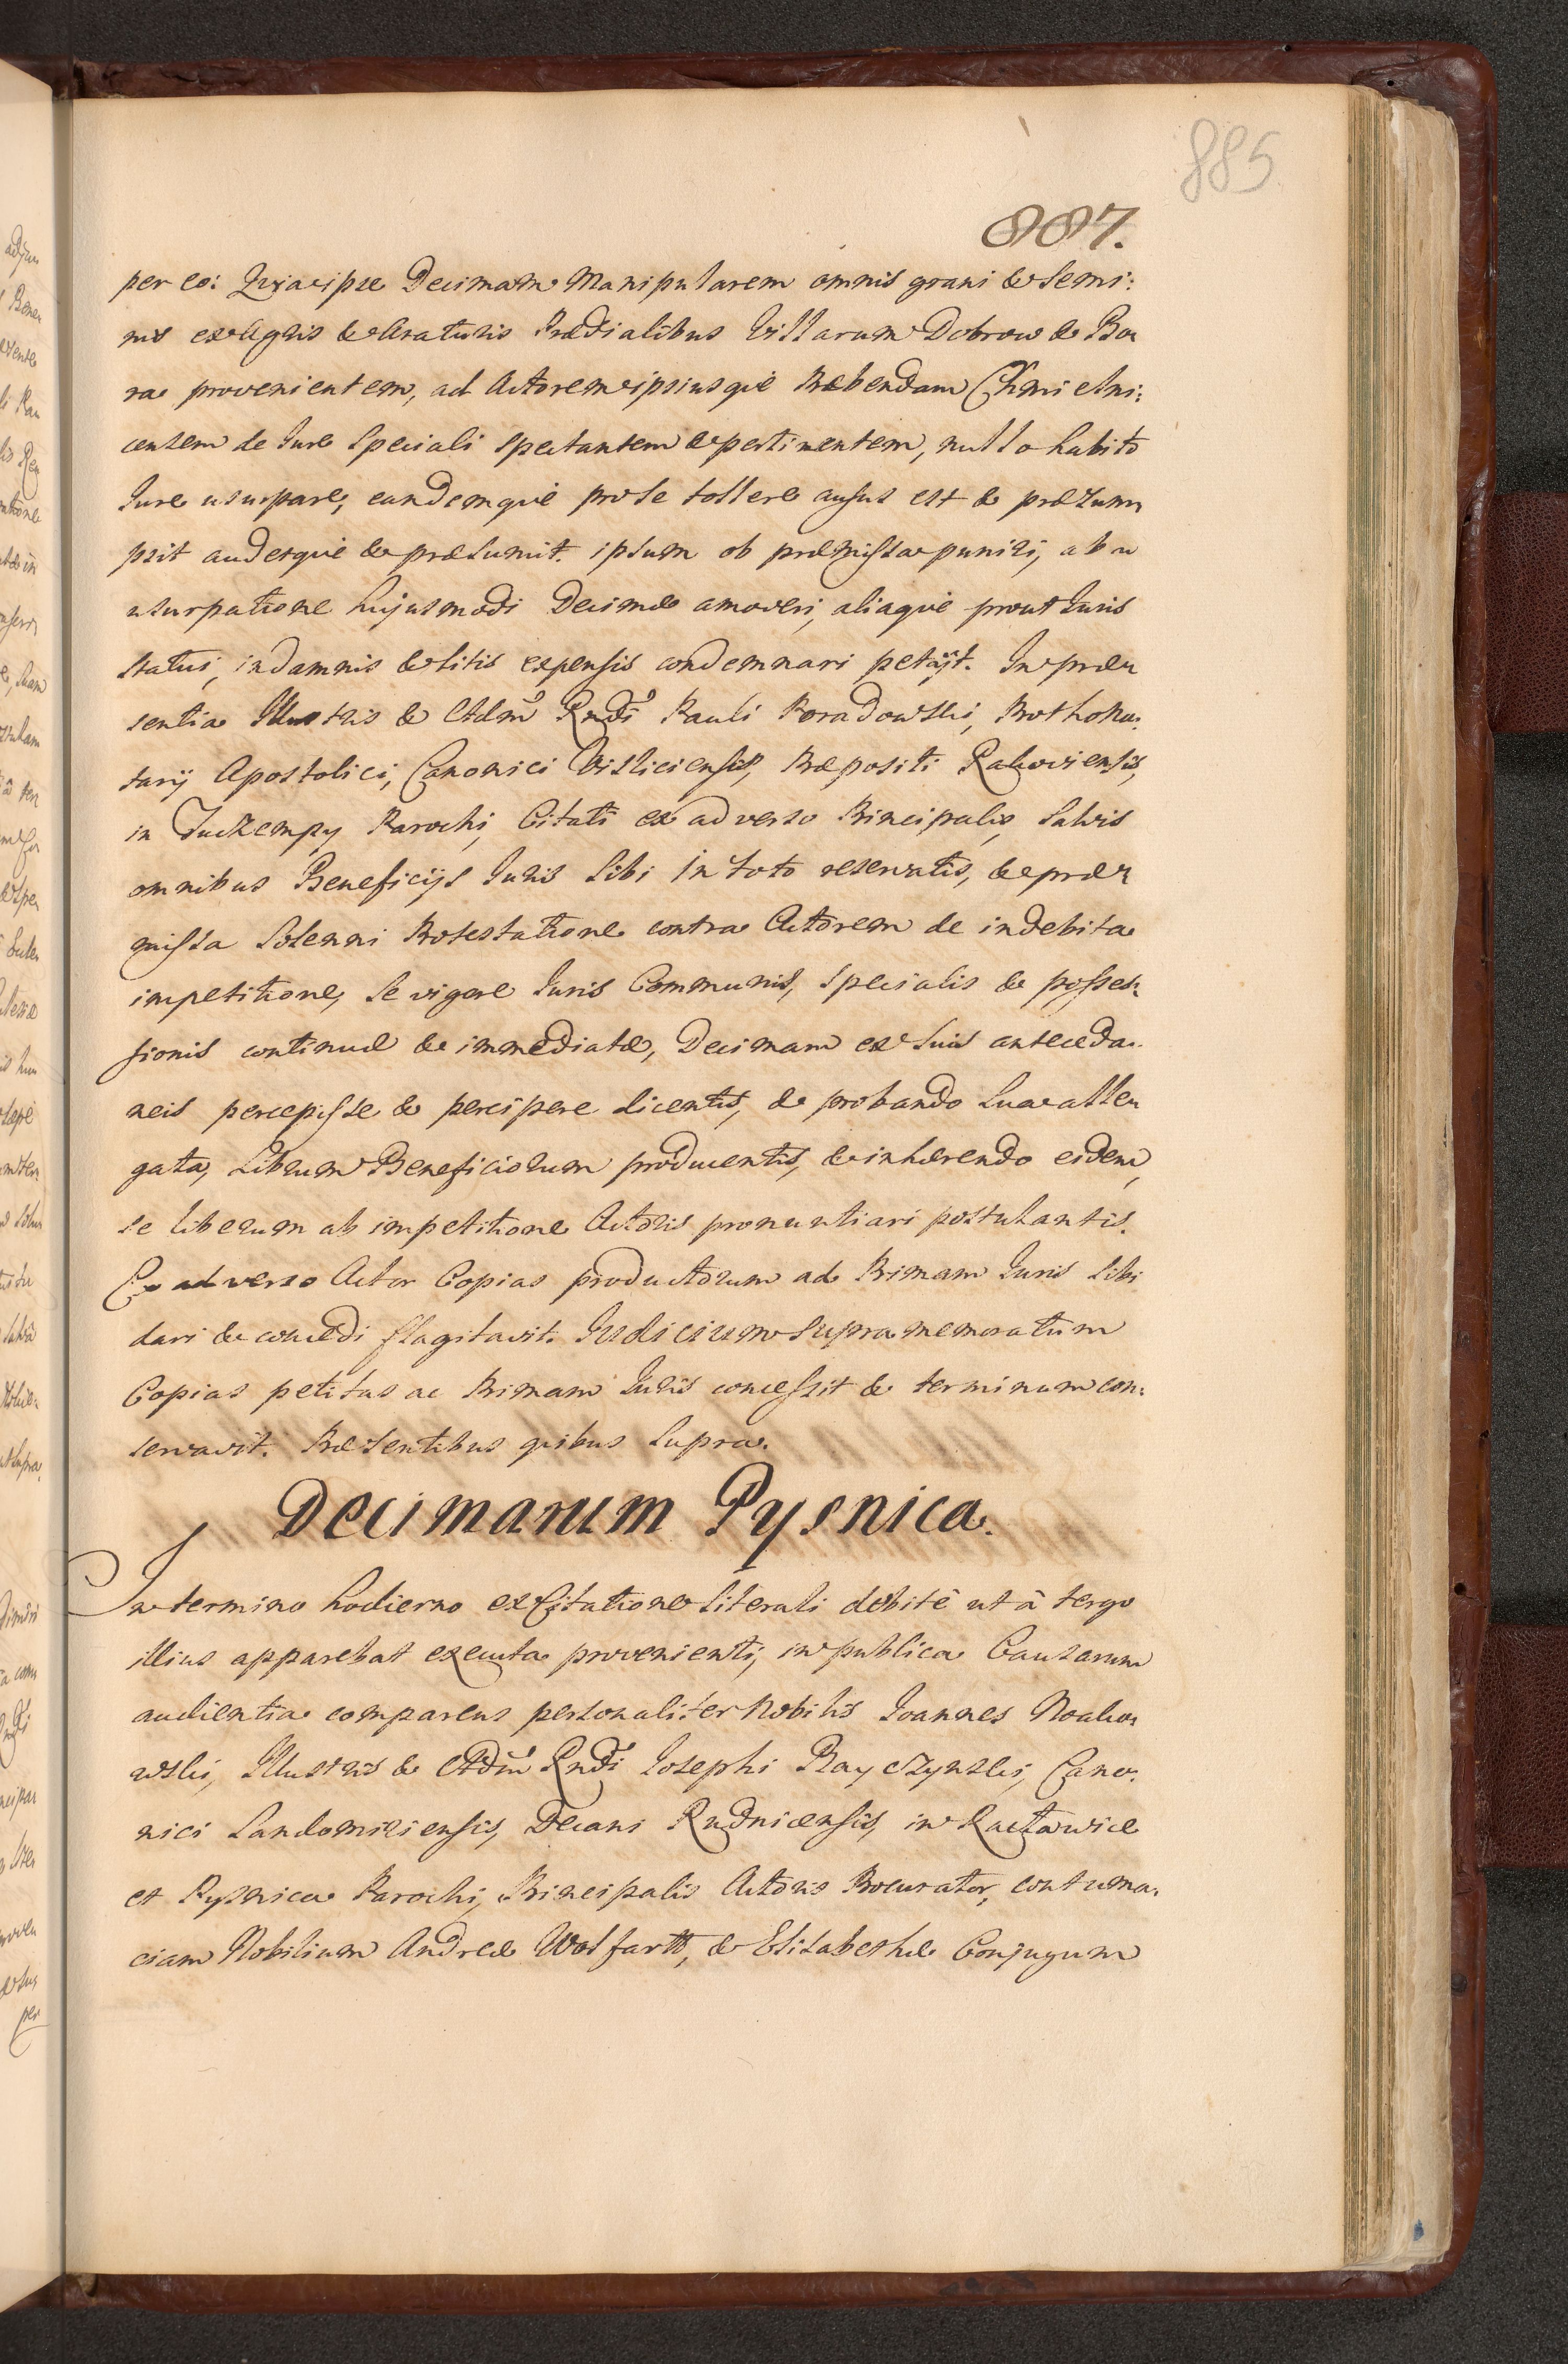 885
887.
per eo: Quia ipse Decimam Manipularem omnis grani & Semi:
nis ex Agris & Araturis Prædialibus Villarum Dobrow & Bo
ra provenientem, ad Actorem ipsiusque Præbendam Chmielni:
censem de Jure Speciali spectantem & pertinentem, nullo habito
Jure usurpare, eandemque pro se tollere ausus est & præsum
psit audetque & præsumit. ipsum ob præmissa puniri, ab
usurpatione hujusmodi Decimæ amoveri, aliaque prout Juris
statui, in damnis & litis expensis condemnari petijt. In præ
sentia Illustris & Adm Rndi Pauli Poradowski, Prothono.
tarij Apostolici, Canonici Visliciensis, Præpositi Rakoviensis,
in Tuczempy Parochi, Citati ex adverso Principalis, Salvis
omnibus Beneficijs Juris Sibi in toto reservatis, & præ
missa Solenni Protestatione contra Actorem de indebita
impetitione, Se vigore Juris Communis, Specialis & posses:
sionis continuæ & immediatæ, Decimam ex Suis anteceda.
neis percepisse & percipere dicentis, & probando Sua alle
gata, Librum Beneficiorum producentis, & inhærendo eidem,
se liberum ab impetitione Actoris pronuntiari postulantis.
Ex adverso Actor Copias productorum ad Primam Juris Sibi
dari & concedi flagitavit. Judicium Supramemoratum
Copias petitas ac Primam Juris concessit & terminum con:
servavit. Præsentibus quibus Supra.
Decimarum Pysnica.
In termino hodierno ex Citatione Literali debitè ut à tergo
illius apparebat executa provenienti, in publica Causarum
audientia comparens personaliter Nobilis Joannes
wski, Illustris & Adm Rndi Josephi Rayczynski, Cano.
nici Sandomiriensis, Decani Rudnicensis, in Racławice
et Pysnica Parochi, Principalis Actoris Procurator, contuma.
ciam Nobilium Andreæ Wolfartt, & Elisabethæ Conjugum